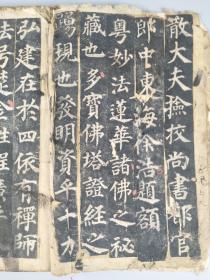 散大夫撿挍尚書都官
郎中東海徐浩題額
粵妙法蓮華諸佛之祕
藏也多寶佛塔證經之
踴現也發明資乎十力
弘建在於四依有禪師
法号楚金姓程廣